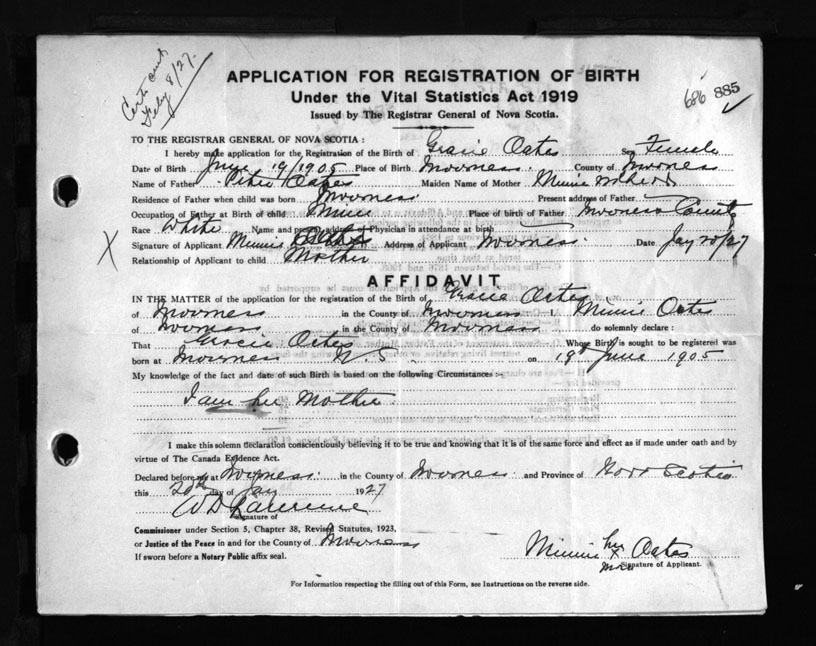 Cert. sent
Feby 8/27.
APPLICATION FOR REGISTRATION OF BIRTH
Under the Vital Statistics Act 1919
Issued by The Registrar General of Nova Scotia.
686 885
TO THE REGISTRAR GENERAL OF NOVA SCOTIA:
I hereby make application for the Registration of the Birth of Gracie Oates Sex Female
Date of Birth June 19/1905 Place of Birth Inverness. County of Inverness
Name of Father Peter Oates Maiden Name of Mother Minnie
Residence of Father when child was born Inverness Present address of Father
Occupation of Father at Birth of child Miner Place of birth of Father Inverness County
Race White Name and present address of Physician in attendance at birth
Signature of Applicant Minnie Oates Address of Applicant Inverness. Date Jany 20/27
X
Relationship of Applicant to child Mother
AFFIDAVIT
IN THE MATTER of the application for the registration of the Birth of Gracie Oates
of Inverness in the County of Inverness I, Minnie Oates
of Inverness in the County of Inverness do solemnly declare:
That Gracie Oates Whose Birth is sought to be registered was
born at Inverness N.S. on 19th June 1905
My knowledge of the fact and date of such Birth is based on the following Circumstances:-
I am her Mother
I make this solemn declaration conscientiously believing it to be true and knowing that it is of the same force and effect as if made under oath and by
virtue of The Canada Evidence Act.
Declared before me at Inverness. in the County of Inverness and Province of Nova Scotia
this 20th day of Jany 1927
W D Lawrence
Signature of
Commissioner under Section 5, Chapter 38, Revised Statutes, 1923,
or Justice of the Peace in and for the County of Inverness
If sworn before a Notary Public affix seal.
Minnie her X Oates
mark
Signature of Applicant.
For Information respecting the filling out of this Form, see Instructions on the reverse side.